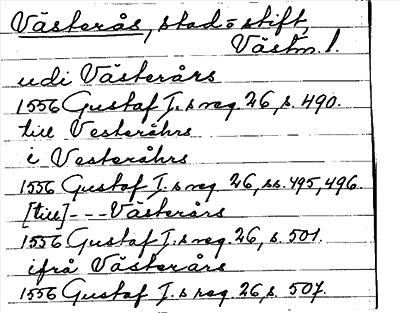 Västerås, stad o stift,
Västm. l.
udi Västerårs
1556 Gustaf I:s reg. 26, s. 490.
till Vesteråhrs
i Vesteråhrs
1556 Gustaf I:s reg. 26, ss. 495, 496.
[till] - - - Västerårs
1556 Gustaf I:s reg. 26, s. 501.
ifrå Västerårs
1556 Gustaf I:s reg. 26, s. 507.